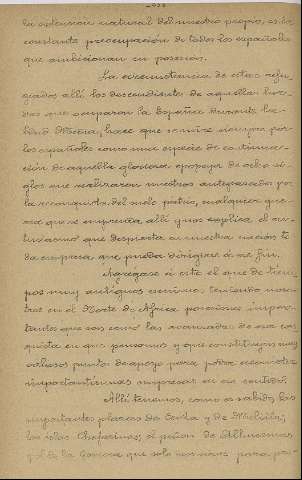 la extension natural del nuestro propio, es la
constante preocupación de todos los españoles
que ambicionan su posesión.
La circunstancia de estar refu-
giados allí los descendientes de aquellas hor-
das que ocuparon la España durante la
Edad Media, hace que se mire siempre por
los españoles como una especie de continua-
ción de aquella gloriosa epopeya de ocho si-
glos que realizaron nuestros antepasados por
la reconquista del suelo patrio, cualquier que-
rra que se emprenda allí y nos explica el en-
tusiasmo que despierta en nuestra nación to-
da empresa que pueda dirigirse á ese fin.
Agregase á esto el que de tiem-
pos muy antiguos venimos teniendo noso-
tros en el Norte de Africa posesiones impor-
tantes que son como las avanzadas de esa con-
quista en que pensamos y que constituyen muy
valiosos puntos de apoyo para poder acometer
importantísimas empresas en ese sentido.
Allí tenemos, como es sabido, las
importantes plazas de Ceuta y de Melilla,
las islas Chafarinas, el peñon de Alhucemas
y el de la Gomera que solo nos sirven para